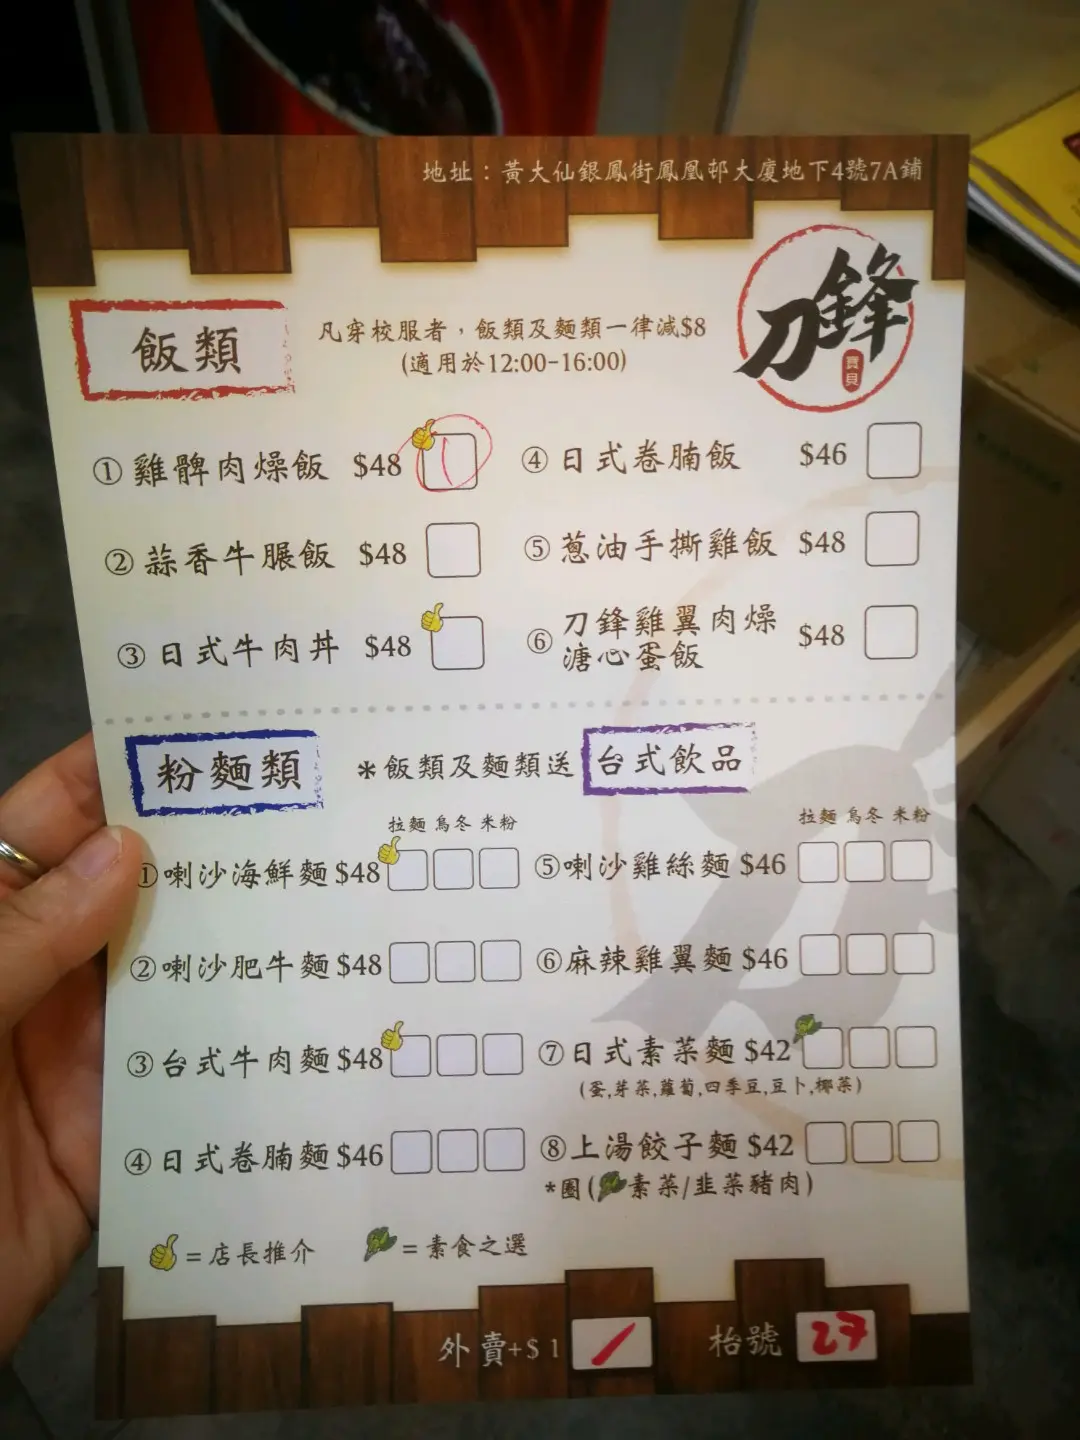 地址：黃大仙銀鳳街鳳凰邨大廈地下4號7A鋪
刀鋒
寶貝
飯類
凡穿校服者，飯類及麵類一律減$8
(適用於12:00-16:00)
① 雞髀肉燥飯 $48 1
② 蒜香牛脤飯 $48
③ 日式牛肉丼 $48
④ 日式卷腩飯 $46
⑤ 蔥油手撕雞飯 $48
⑥ 刀鋒雞翼肉燥
溏心蛋飯 $48
粉麵類
*飯類及麵類送 台式飲品
拉麵 烏冬 米粉
①喇沙海鮮麵 $48
②喇沙肥牛麵 $48
③台式牛肉麵 $48
④日式卷腩麵 $46
拉麵 烏冬 米粉
⑤喇沙雞絲麵 $46
⑥麻辣雞翼麵 $46
⑦日式素菜麵 $42
(蛋,芽菜,蘿蔔,四季豆,豆卜,椰菜)
⑧上湯餃子麵 $42
*圈(素菜/韭菜豬肉)
=店長推介
=素食之選
外賣+$1
枱號 27